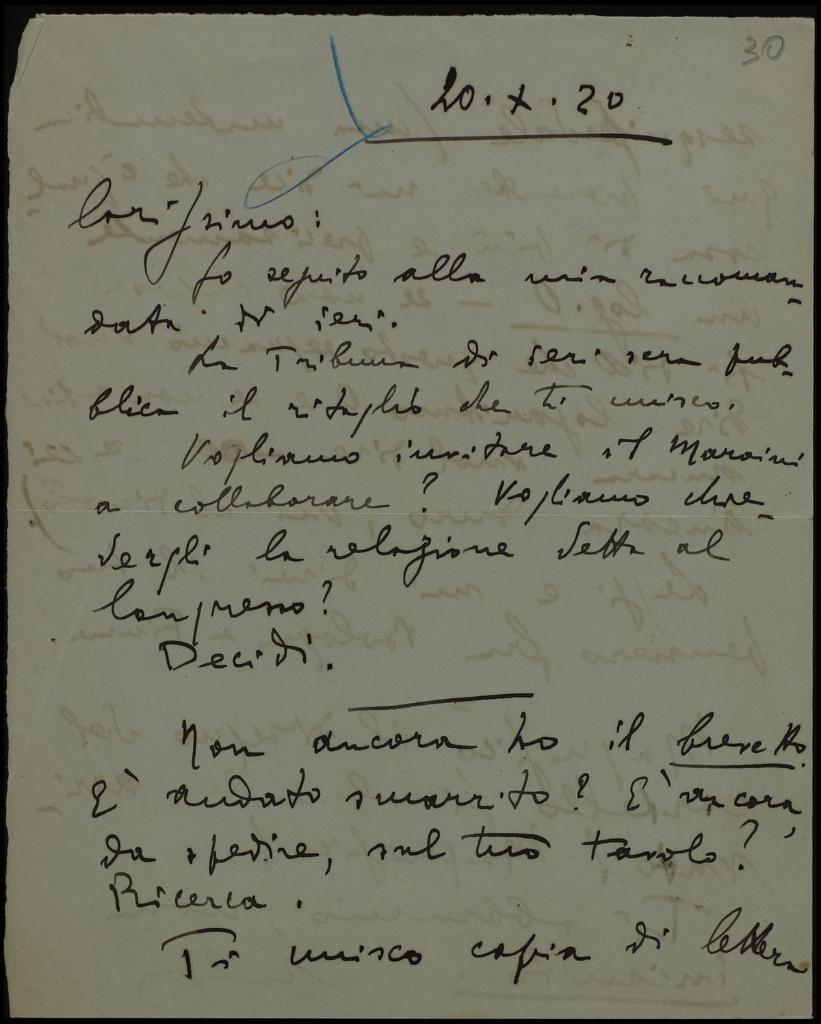 30
20.X.20
Carissimo:
Fo seguito alla mia raccoman-
data di ieri.
La Tribuna di ieri sera pub-
blica il ritaglio che ti unisco.
Vogliamo invitare il Maraini
a collaborare? Vogliamo chie-
dergli la relazione detta al
Congresso?
Decidi.
Non ancora ho il brevetto.
E' andato smarrito? E' ancora,
da spedire, sul tuo tavolo?
Ricerca.
Ti unisco copia di lettera